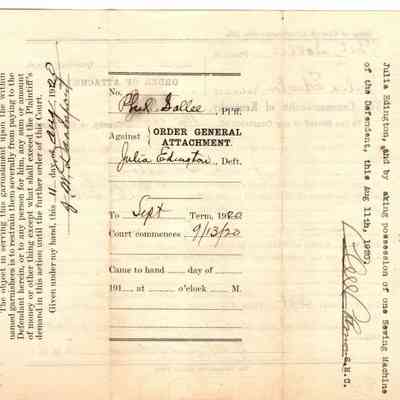 The object in serving this garnishment upon the within
named garnishees is to restrain them severally from paying to the
Defendant herein, or to any person for him, any sum or amount
of money or other thing except what shall exceed the Plaintiff's
demand in this action until the further order of this Court.
Given under my hand, this 11 day of Aug. 1920
No.
Phil. Sallee, Pl'ff.
Against
ORDER GENERAL
ATTACHMENT.
Julia Edington, Deft.
To Sept Term, 1920
Court commences 9/13/20
Came to hand day of
191 , at o'clock M.
Julia Edington, and by aking possession of one Sewing Machine
of the Defendant, this Aug 11th, 1920.